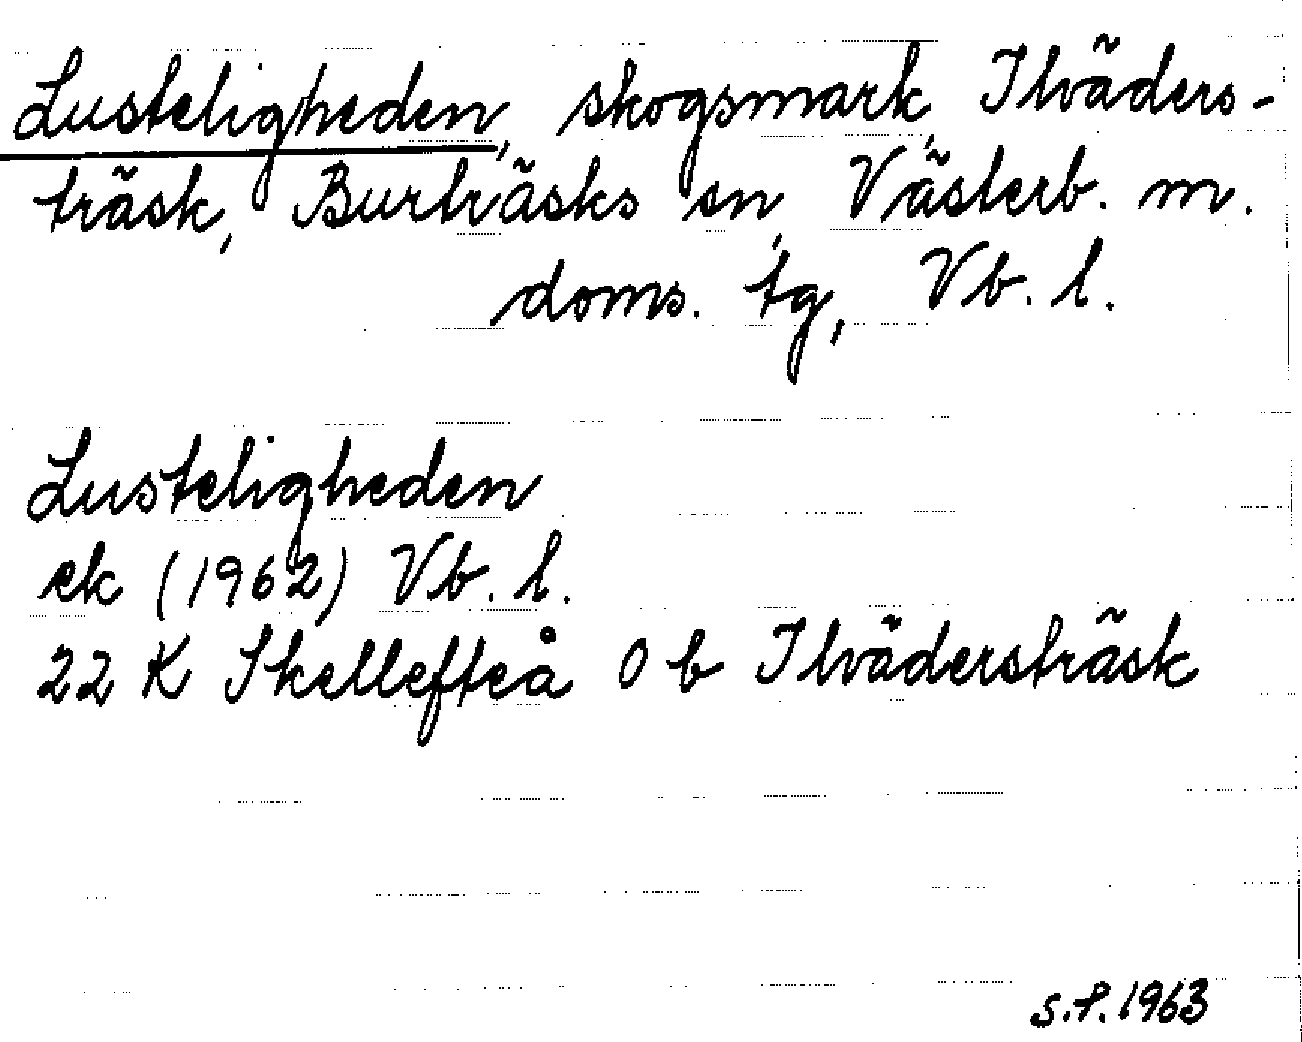 Lusteligheden, skogsmark, Ilväders-
träsk, Burträsks sn, Västerb. m.
doms. tg, Vb. l.
Lusteligheden
ek (1962) Vb. l.
22 K Skellefteå 0 b Ilvädersträsk
s.f. 1963